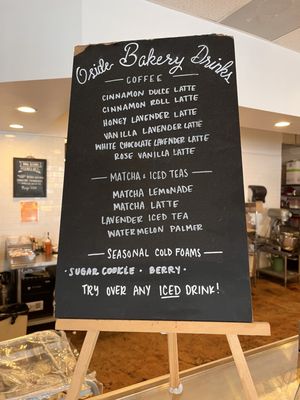 Oside Bakery Drinks
COFFEE
CINNAMON DULCE LATTE
CINNAMON ROLL LATTE
HONEY LAVENDER LATTE
VANILLA LAVENDER LATTE
WHITE CHOCOLATE LAVENDER LATTE
ROSE VANILLA LATTE
MATCHA + ICED TEAS
MATCHA LEMONADE
MATCHA LATTE
LAVENDER ICED TEA
WATERMELON PALMER
SEASONAL COLD FOAMS
· SUGAR COOKIE · BERRY ·
TRY OVER ANY ICED DRINK!